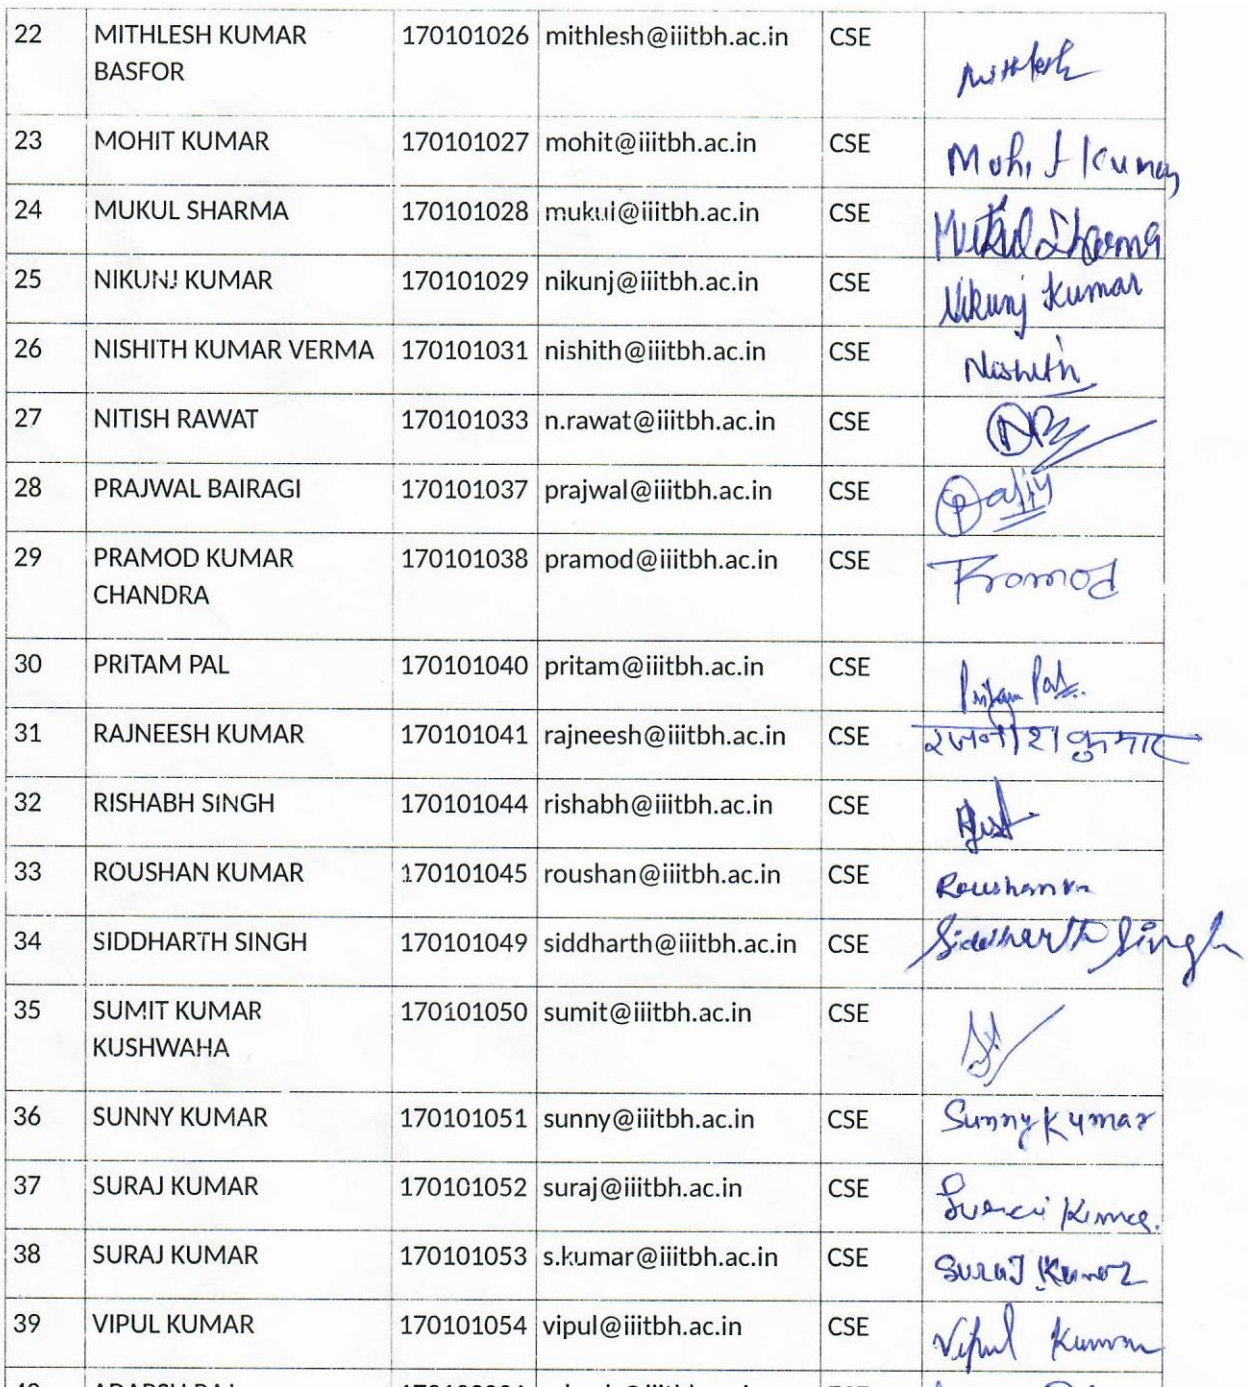 22 MITHLESH KUMAR 170101026 mithlesh@iiitbh.ac.in CSE Mithlesh
BASFOR
23 MOHIT KUMAR 170101027 mohit@iiitbh.ac.in CSE Mohit Kumar
24 MUKUL SHARMA 170101028 mukul@iiitbh.ac.in CSE Mukul Sharma
25 NIKUNJ KUMAR 170101029 nikunj@iiitbh.ac.in CSE Nikunj Kumar
26 NISHITH KUMAR VERMA 170101031 nishith@iiitbh.ac.in CSE Nishith
27 NITISH RAWAT 170101033 n.rawat@iiitbh.ac.in CSE
28 PRAJWAL BAIRAGI 170101037 prajwal@iiitbh.ac.in CSE
29 PRAMOD KUMAR 170101038 pramod@iiitbh.ac.in CSE Pramod
CHANDRA
30 PRITAM PAL 170101040 pritam@iiitbh.ac.in CSE Pritam Pal
31 RAJNEESH KUMAR 170101041 rajneesh@iiitbh.ac.in CSE रजनीश कुमार
32 RISHABH SINGH 170101044 rishabh@iiitbh.ac.in CSE
33 ROUSHAN KUMAR 170101045 roushan@iiitbh.ac.in CSE Roushan Kr
34 SIDDHARTH SINGH 170101049 siddharth@iiitbh.ac.in CSE Siddharth Singh
35 SUMIT KUMAR 170101050 sumit@iiitbh.ac.in CSE
KUSHWAHA
36 SUNNY KUMAR 170101051 sunny@iiitbh.ac.in CSE Sunny Kumar
37 SURAJ KUMAR 170101052 suraj@iiitbh.ac.in CSE Suraj Kumar
38 SURAJ KUMAR 170101053 s.kumar@iiitbh.ac.in CSE Suraj Kumar
39 VIPUL KUMAR 170101054 vipul@iiitbh.ac.in CSE Vipul Kumar